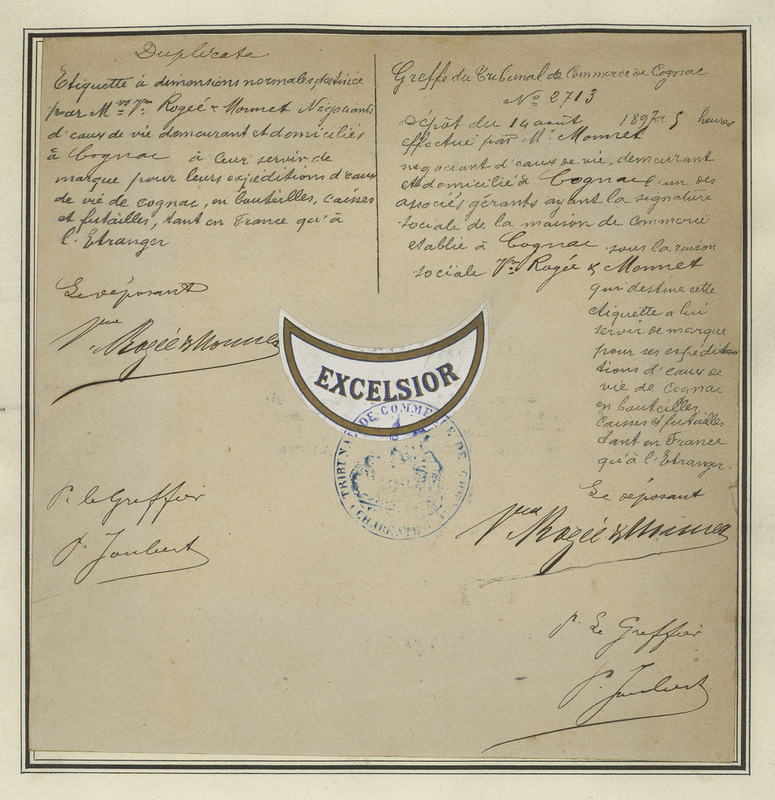 Duplicata
Etiquette à dimensions normales, destinée
par Mrs Vve Rogée & Monnet Négociants
d'eaux de vie demeurant et domiciliés
à Cognac à leur servir de
marque pour leurs expéditions d'eaux
de vie de cognac, en bouteilles, caisses
et futailles, tant en France qu'à
l'Etranger
Le déposant
Vve Rogée & Monnet
P. le Greffier
P. Joubert
Greffe du Tribunal de Commerce de Cognac
No 2713
Dépôt du 14 août 1897 à 5 heures
effectué par Mr Monnet
négociant d'eaux de vie, demeurant
et domicilié à Cognac l'un des
associés gérants ayant la signature
sociale de la maison de commerce
établie à Cognac sous la raison
sociale Vve Rogée & Monnet
qui destine cette
étiquette à lui
servir de marque
pour ses expédi-
tions d'eaux de
vie de Cognac
en bouteilles,
caisses et futailles
tant en France
qu'à l'Etranger.
Le déposant
Vve Rogée & Monnet
P. Le Greffier
P. Joubert
EXCELSIOR
TRIBUNAL DE COMMERCE DE COGNAC
CHARENTE